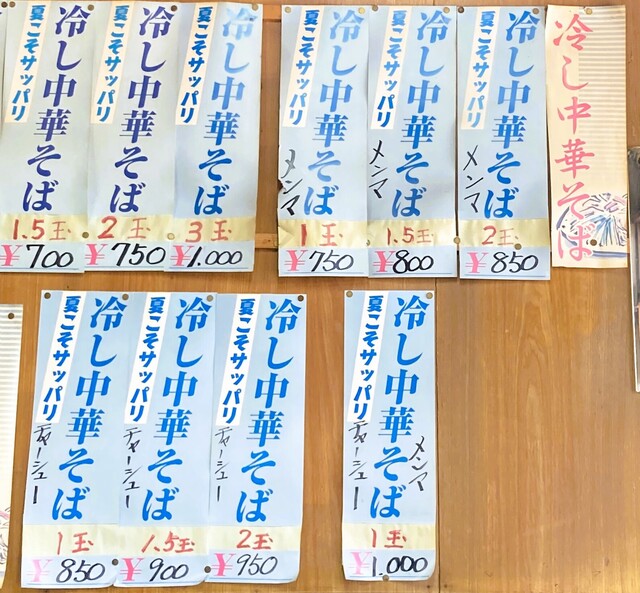 冷し中華そば
夏こそサッパリ
1.5玉
¥700
冷し中華そば
夏こそサッパリ
2玉
¥750
冷し中華そば
夏こそサッパリ
3玉
¥1.000
冷し中華そば
夏こそサッパリ
メンマ
1玉
¥750
冷し中華そば
夏こそサッパリ
メンマ
1.5玉
¥800
冷し中華そば
夏こそサッパリ
メンマ
2玉
¥850
冷し中華そば
冷し中華そば
夏こそサッパリ
チャーシュー
1玉
¥850
冷し中華そば
夏こそサッパリ
チャーシュー
1.5玉
¥900
冷し中華そば
夏こそサッパリ
チャーシュー
2玉
¥950
冷し中華そば
夏こそサッパリ
チャーシュー
メンマ
1玉
¥1.000